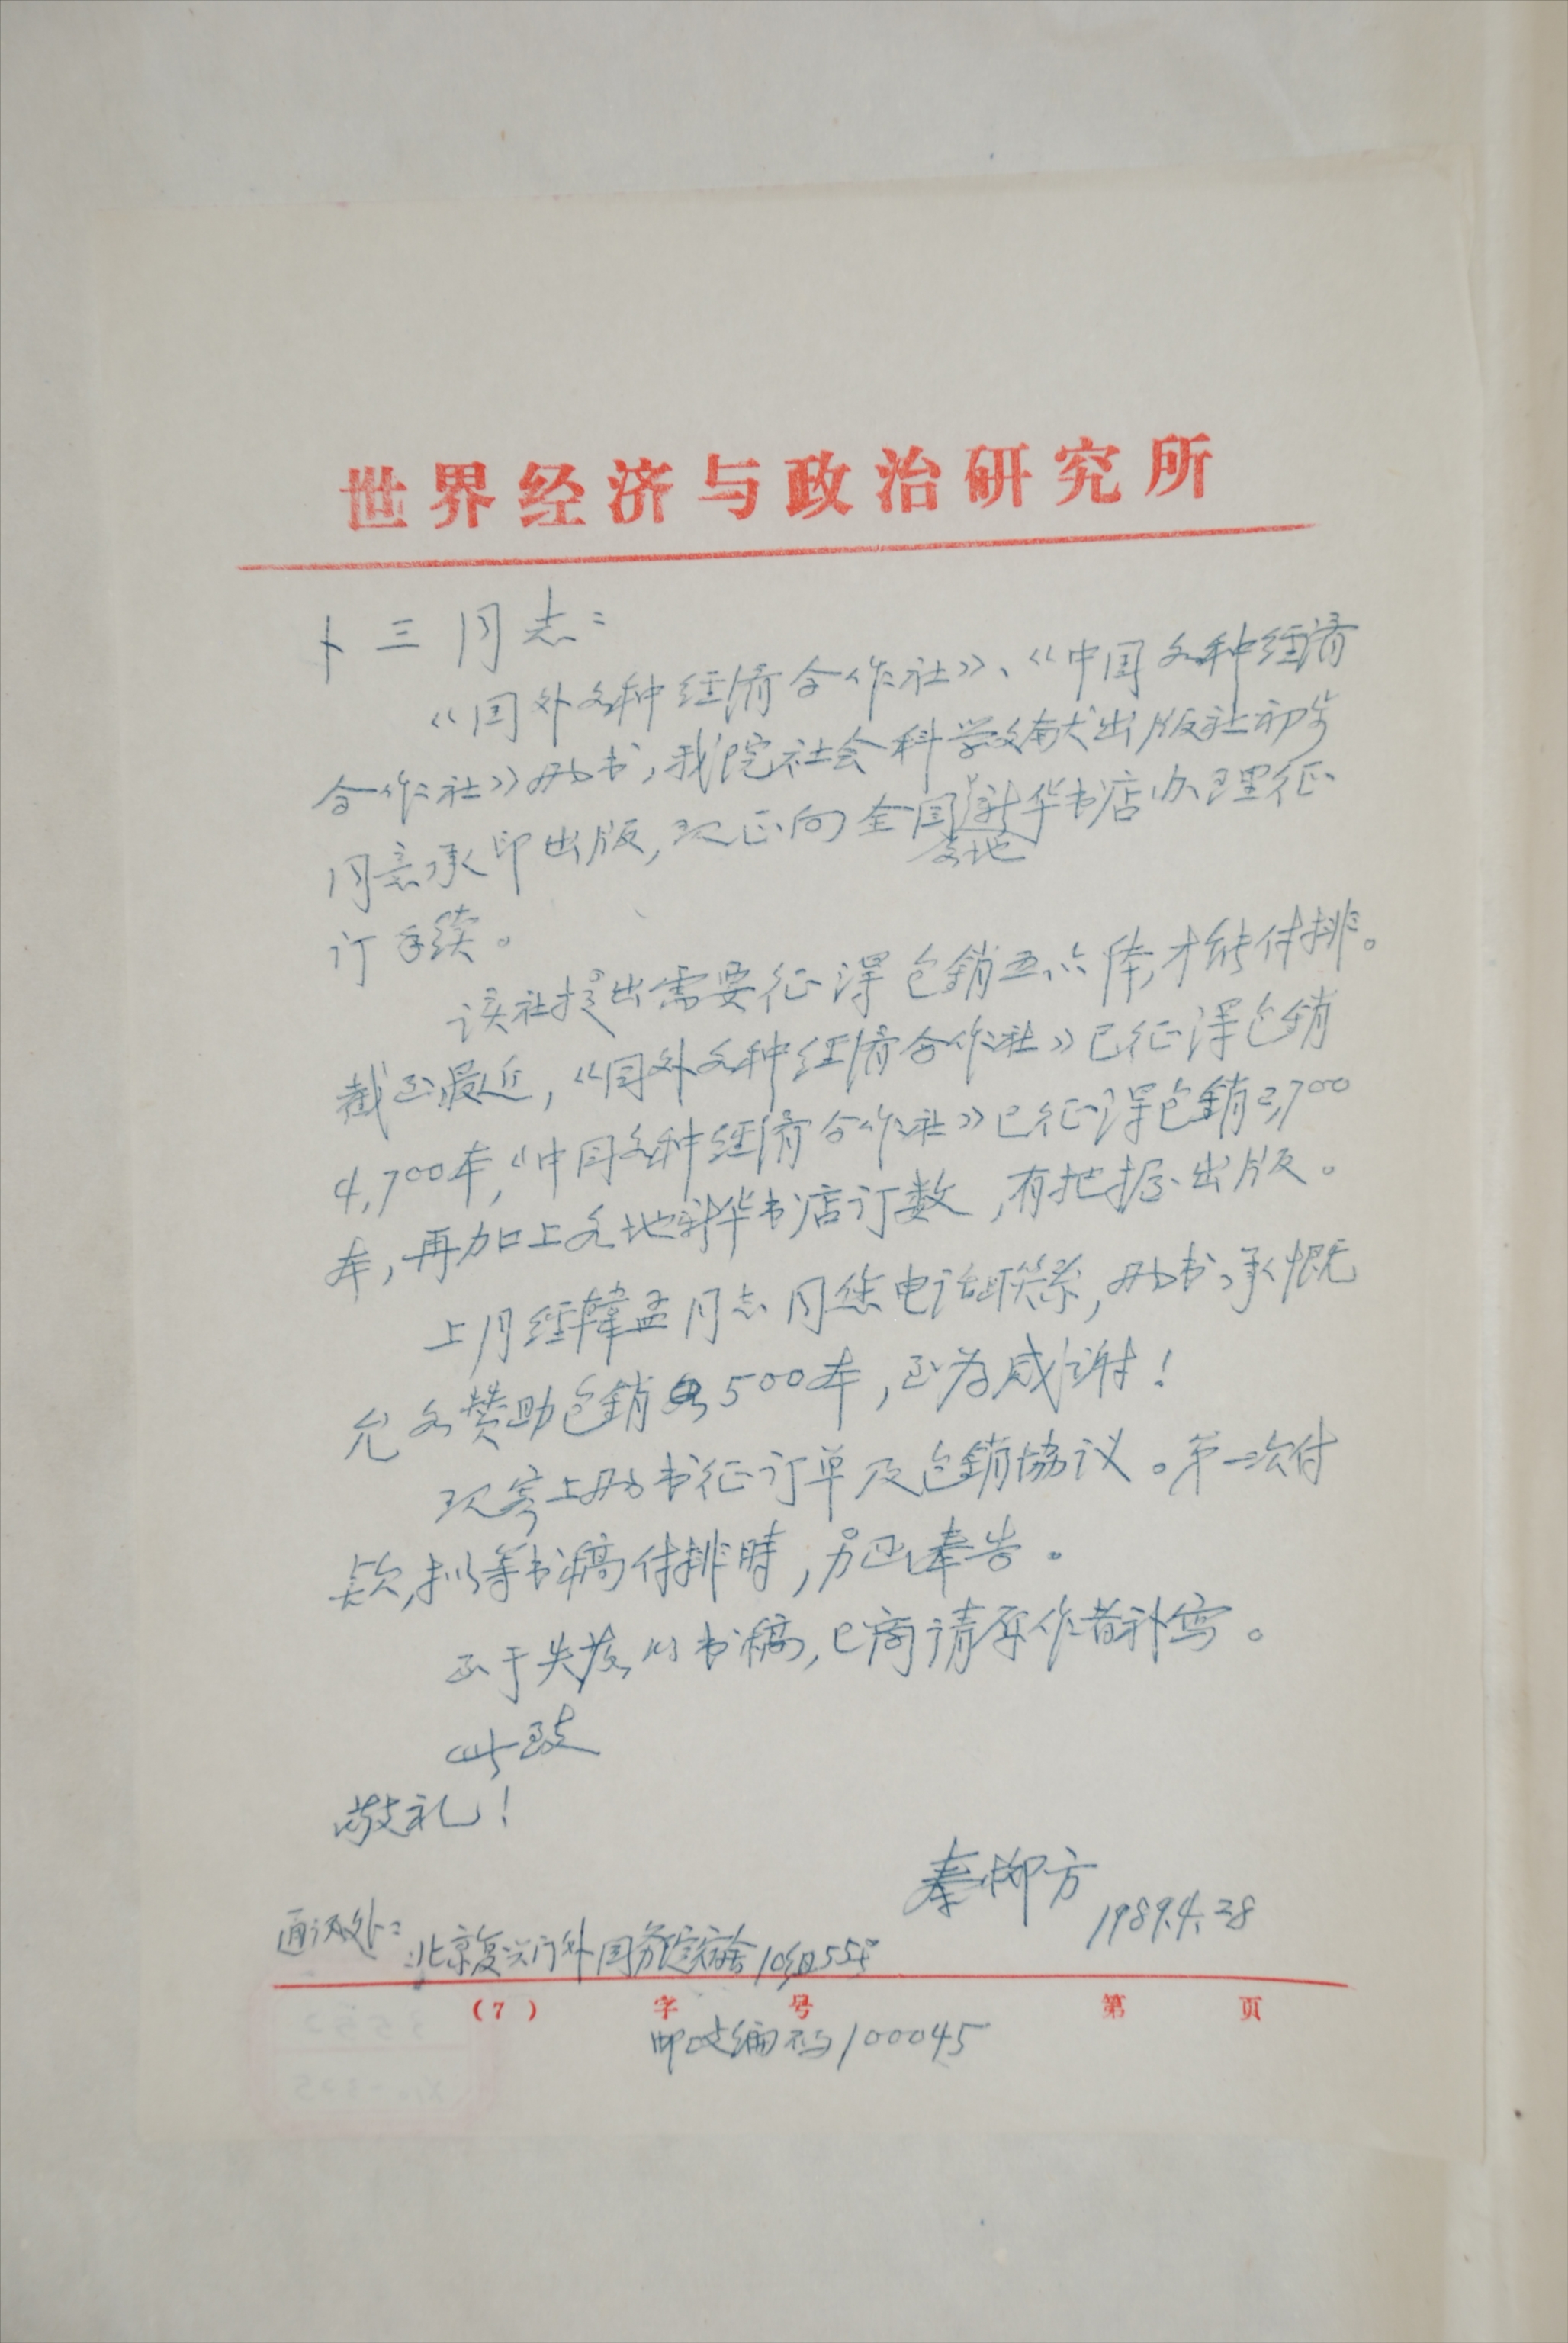 世界经济与政治研究所
卜三同志：
《国外各种经济合作社》、《中国各种经济
合作社》两书，我院社会科学文献出版社初步
同意承印出版，现正向全国各地新华书店办理征
订手续。
该社提出需要征得包销五六仟，才能付排。
截至最近，《国外各种经济合作社》已征得包销
4,700本，《中国各种经济合作社》已征得包销2,700
本，再加上各地新华书店订数，有把握出版。
上月经韩孟同志同您电话联系，两书承慨
允各赞助包销500本，至为感谢！
现寄上两书征订单及包销协议。第一次付
款，拟等书稿付排时，另函奉告。
至于失落的书稿，已商请原作者补写。
此致
敬礼！
秦柳方 1989.4.28
通讯处：北京复兴门外国务院宿舍10组55号
（7） 字 号 第 页
邮政编码100045